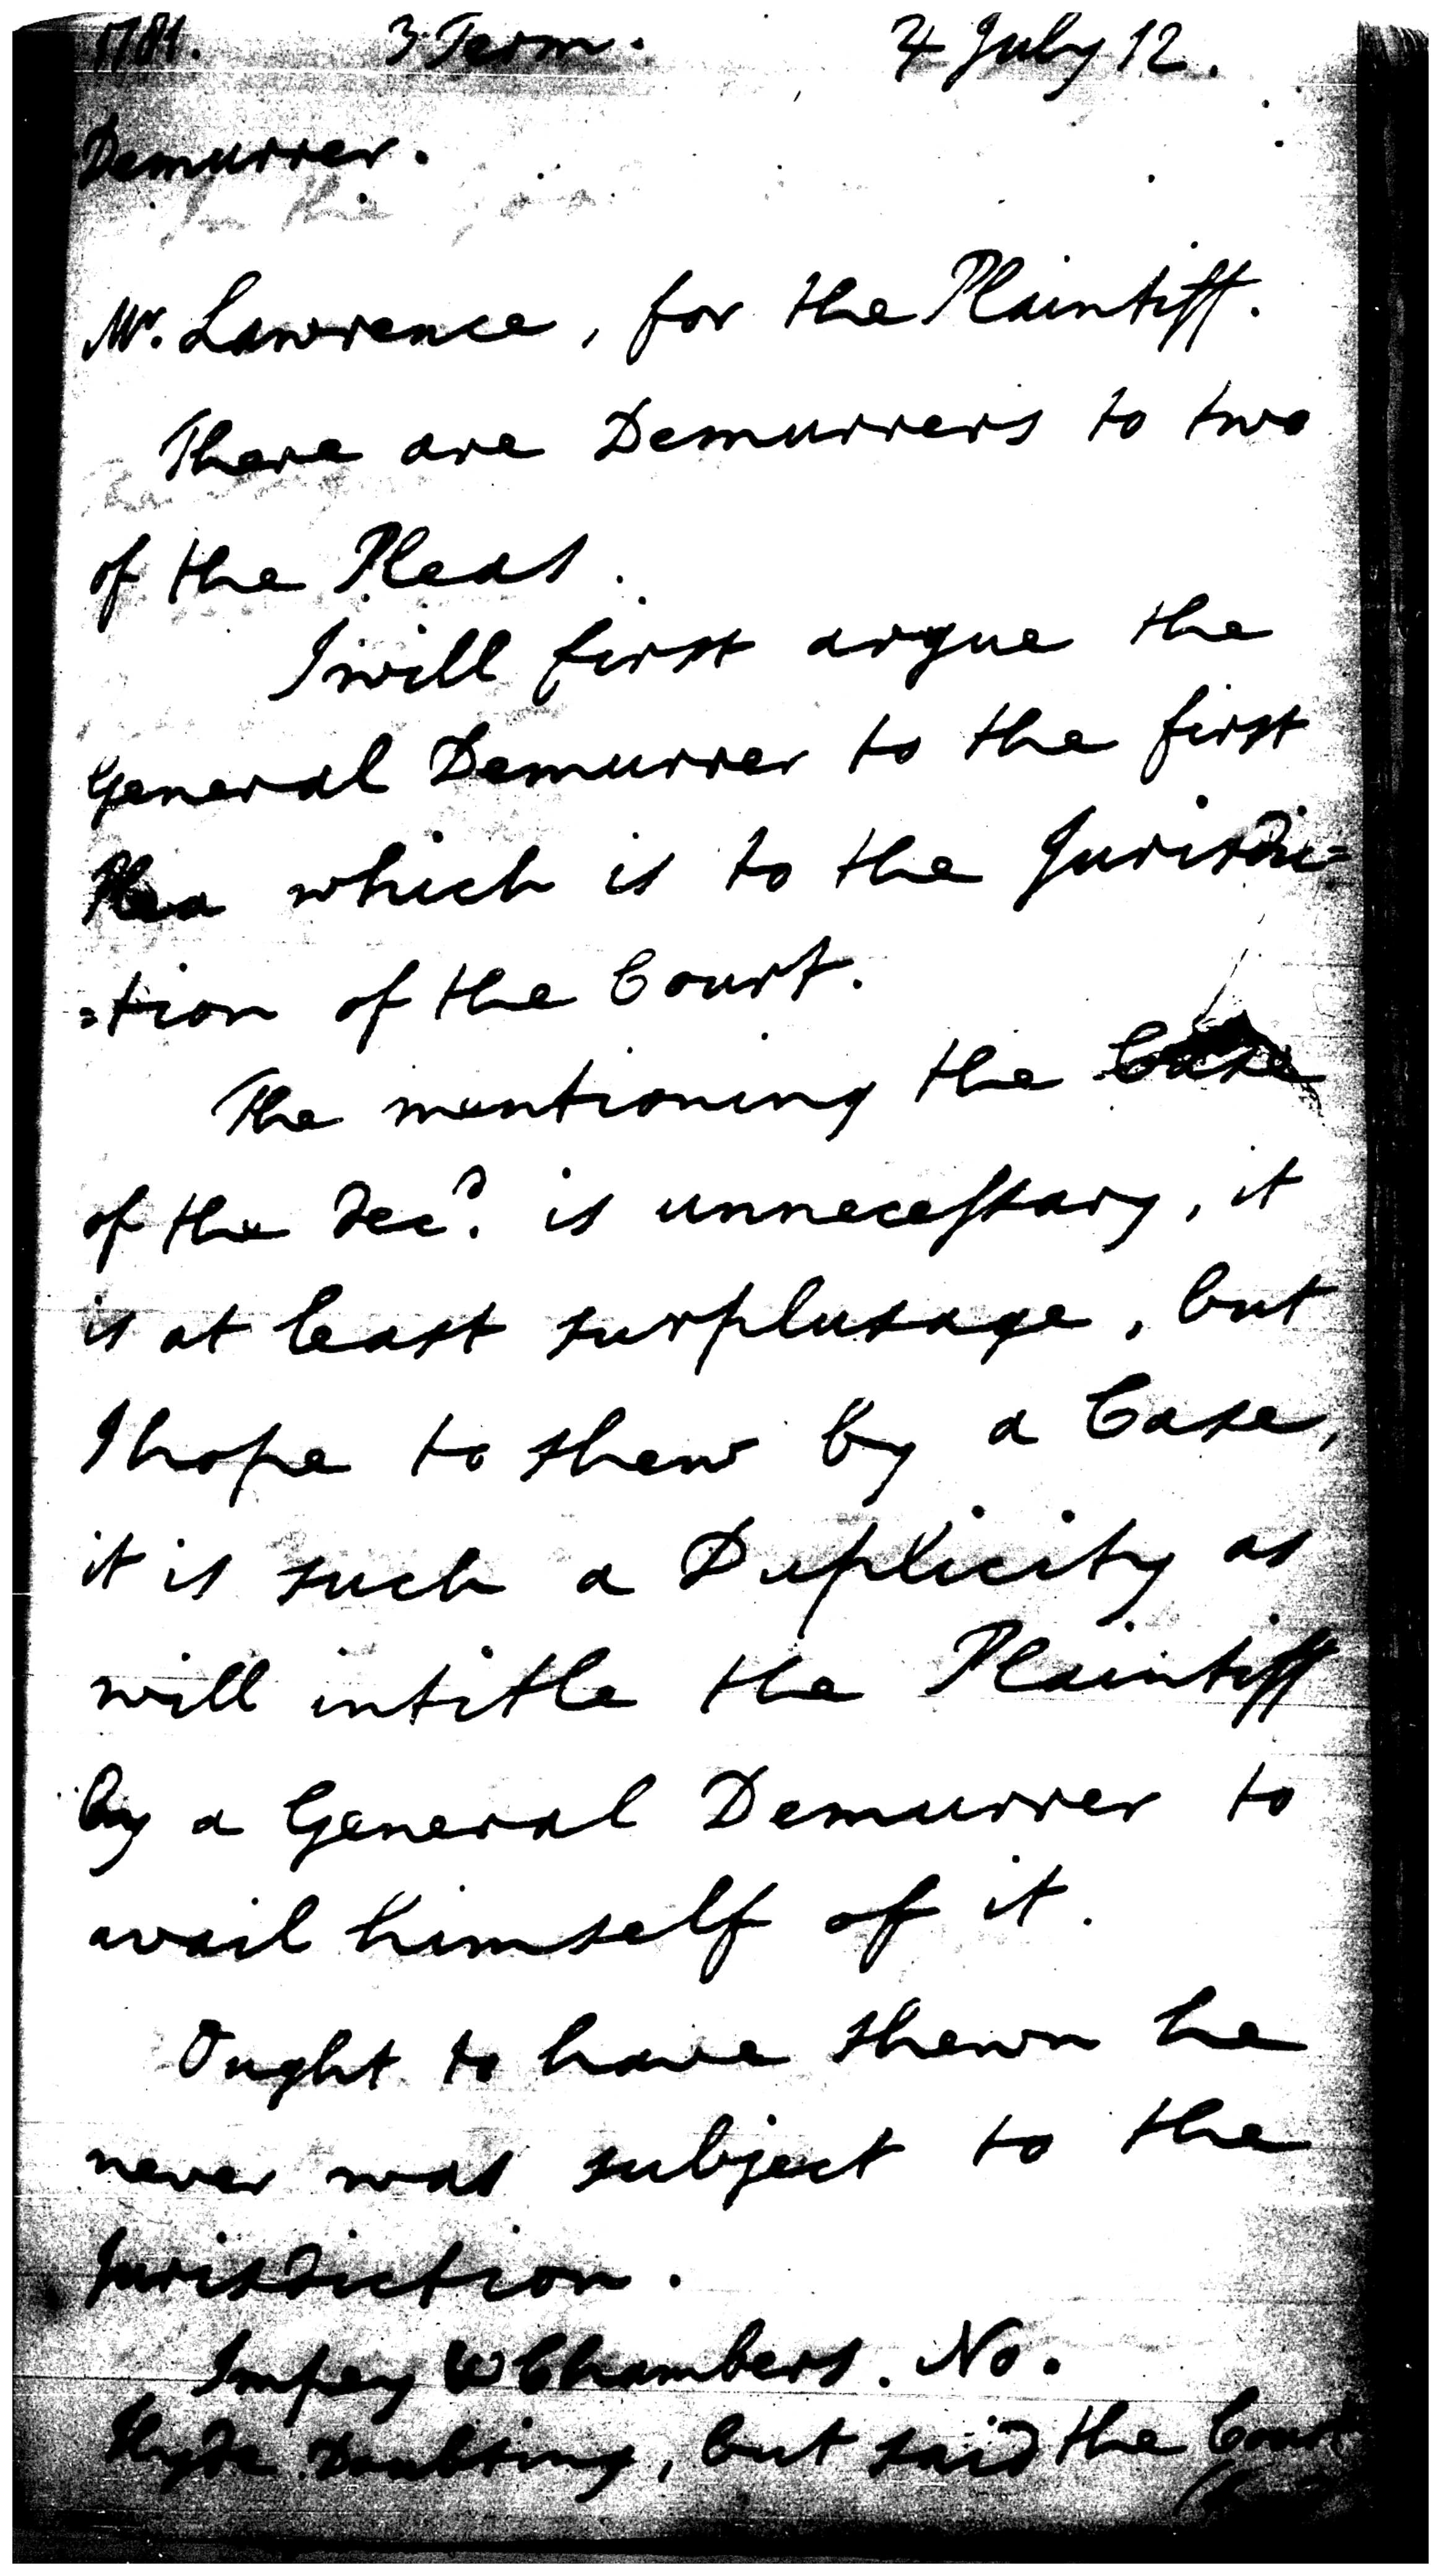 1781. 3 Term. 4 July 12.
Demurrer.
Mr. Lawrence, for the Plaintiff.
There are Demurrers to two
of the Pleas.
I will first argue the
General Demurrer to the first
Plea which is to the Jurisdic=
=tion of the Court.
The mentioning the Case
of the Decd. is unnecessary, it
is at least surplusage, but
I hope to shew by a Case,
it is such a Duplicity as
will intitle the Plaintiff
by a General Demurrer to
avail himself of it.
Ought to have shewn he
never was subject to the
Jurisdiction.
Impey & Chambers. No.
Hyde Doubting, but said the Court